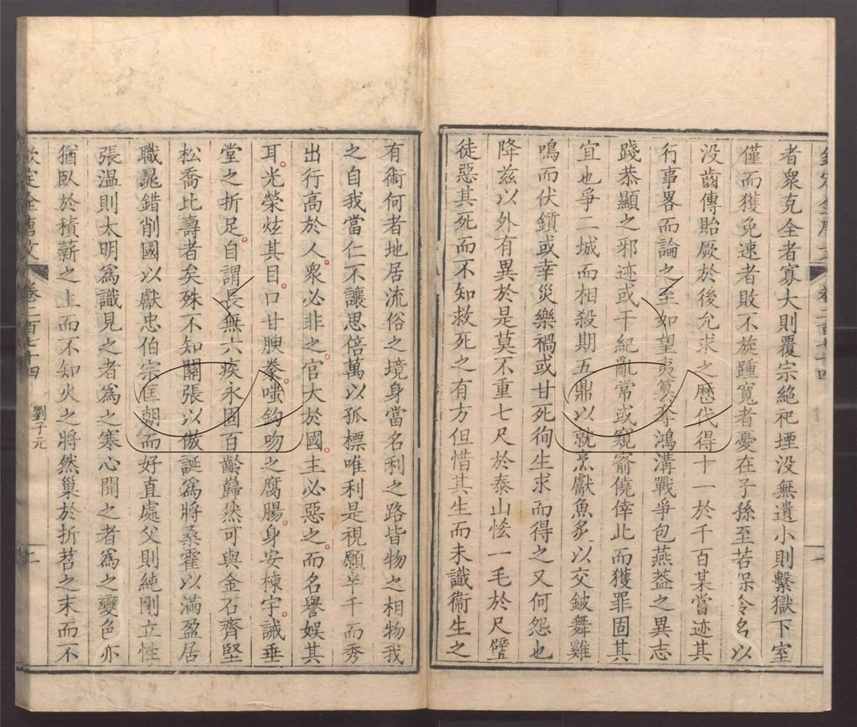 者衆克全者寡大則覆宗絶祀堙没無遺小則繫獄下室
僅而獲免速者敗不旋踵寬者憂在子孫至若保令名以
没齒傳貽厥於後允求之歷代得十一於千百某嘗迹其
行事畧而論之至如望夷篡奪鴻溝戰爭包燕蓋之異志
踐恭顯之邪迹或干紀亂常或窺窬僥倖此而獲罪固其
宜也爭二城而相殺期五鼎以就烹獻魚炙以交鈹舞雞
鳴而伏鑕或幸災樂禍或甘死徇生求而得之又何怨也
降兹以外有異於是莫不重七尺於泰山恡一毛於尺璧
徒惡其死而不知救死之有方但惜其生而未識衞生之
有術何者地居流俗之境身當名利之路皆物之相物我
之自我當仁不讓思倍萬以孤標唯利是視願卒千而秀
出行高於人衆必非之官大於國主必惡之而名譽娱其
耳光榮炫其目口甘腴豢嗤鉤吻之腐腸身安棟宇誡垂
堂之折足自謂長無六疾永固百齡巋然可與金石齊堅
松喬比壽者矣殊不知關張以傲誕爲將桑霍以滿盈居
職鼂錯削國以獻忠伯宗匡朝而好直處父則純剛立性
張温則太明爲識見之者爲之寒心聞之者爲之變色亦
猶臥於積薪之上而不知火之將然巢於折苕之末而不
欽定全唐文 卷二百七十四 劉子元 二